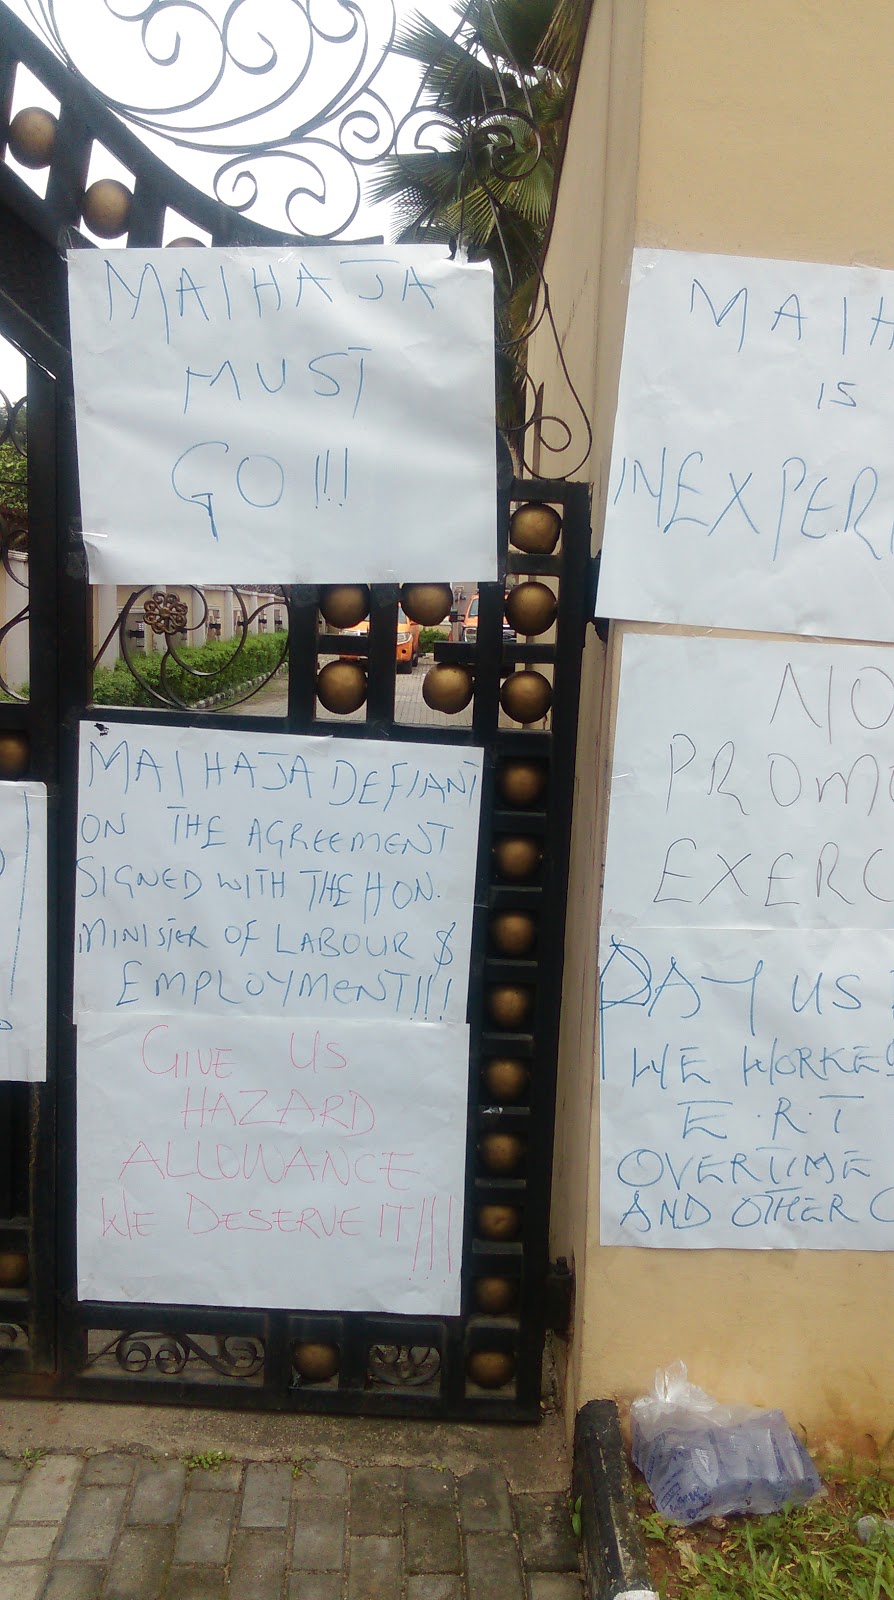 MAIHAJA
MUST
GO!!!
MAIHAJA DEFIANT
ON THE AGREEMENT
SIGNED WITH THE HON.
MINISTER OF LABOUR $
EMPLOYMENT!!!
GIVE US
HAZARD
ALLOWANCE
WE DESERVE IT!!!
MAIH
IS
INEXPER
NO
PROMO
EXERC
PAY US
WE WORKED
E.R.T
OVERTIME
AND OTHER